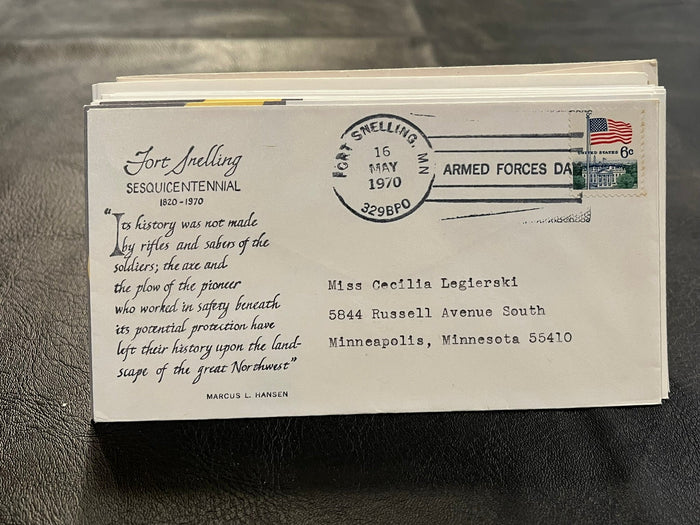 Fort Snelling
SESQUICENTENNIAL
1820-1970
"Its history was not made
by rifles and sabers of the
soldiers; the axe and
the plow of the pioneer
who worked in safety beneath
its potential protection have
left their history upon the land-
scape of the great Northwest"
MARCUS L. HANSEN
FORT SNELLING, MN
16
MAY
1970
329BPO
ARMED FORCES DA
UNITED STATES 6c
Miss Cecilia Legierski
5844 Russell Avenue South
Minneapolis, Minnesota 55410